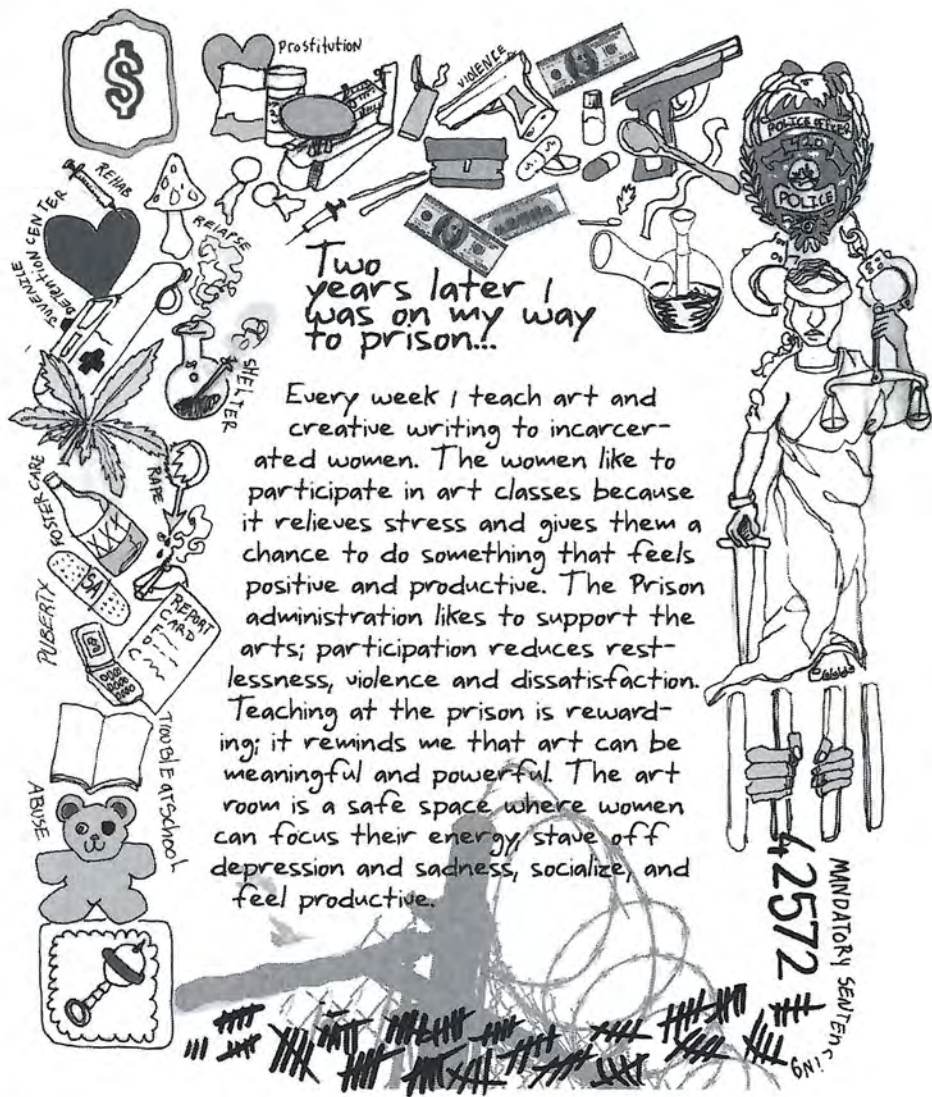 $
Prostitution
VIOLENCE
POLICE OFFICER
420
POLICE
REHAB
JUVENILE
DETENTION CENTER
RELAPSE
SHELTER
RAPE
FOSTER CARE
XX
SA
PUBERTY
REPORT
CARD
TOUBLE at SCHOOL
ABUSE
Two
years later I
was on my way
to prison...
Every week I teach art and
creative writing to incarcer-
ated women. The women like to
participate in art classes because
it relieves stress and gives them a
chance to do something that feels
positive and productive. The Prison
administration likes to support the
arts; participation reduces rest-
lessness, violence and dissatisfaction.
Teaching at the prison is reward-
ing; it reminds me that art can be
meaningful and powerful. The art
room is a safe space where women
can focus their energy, stave off
depression and sadness, socialize, and
feel productive.
42572
MANDATORY SENTENCING